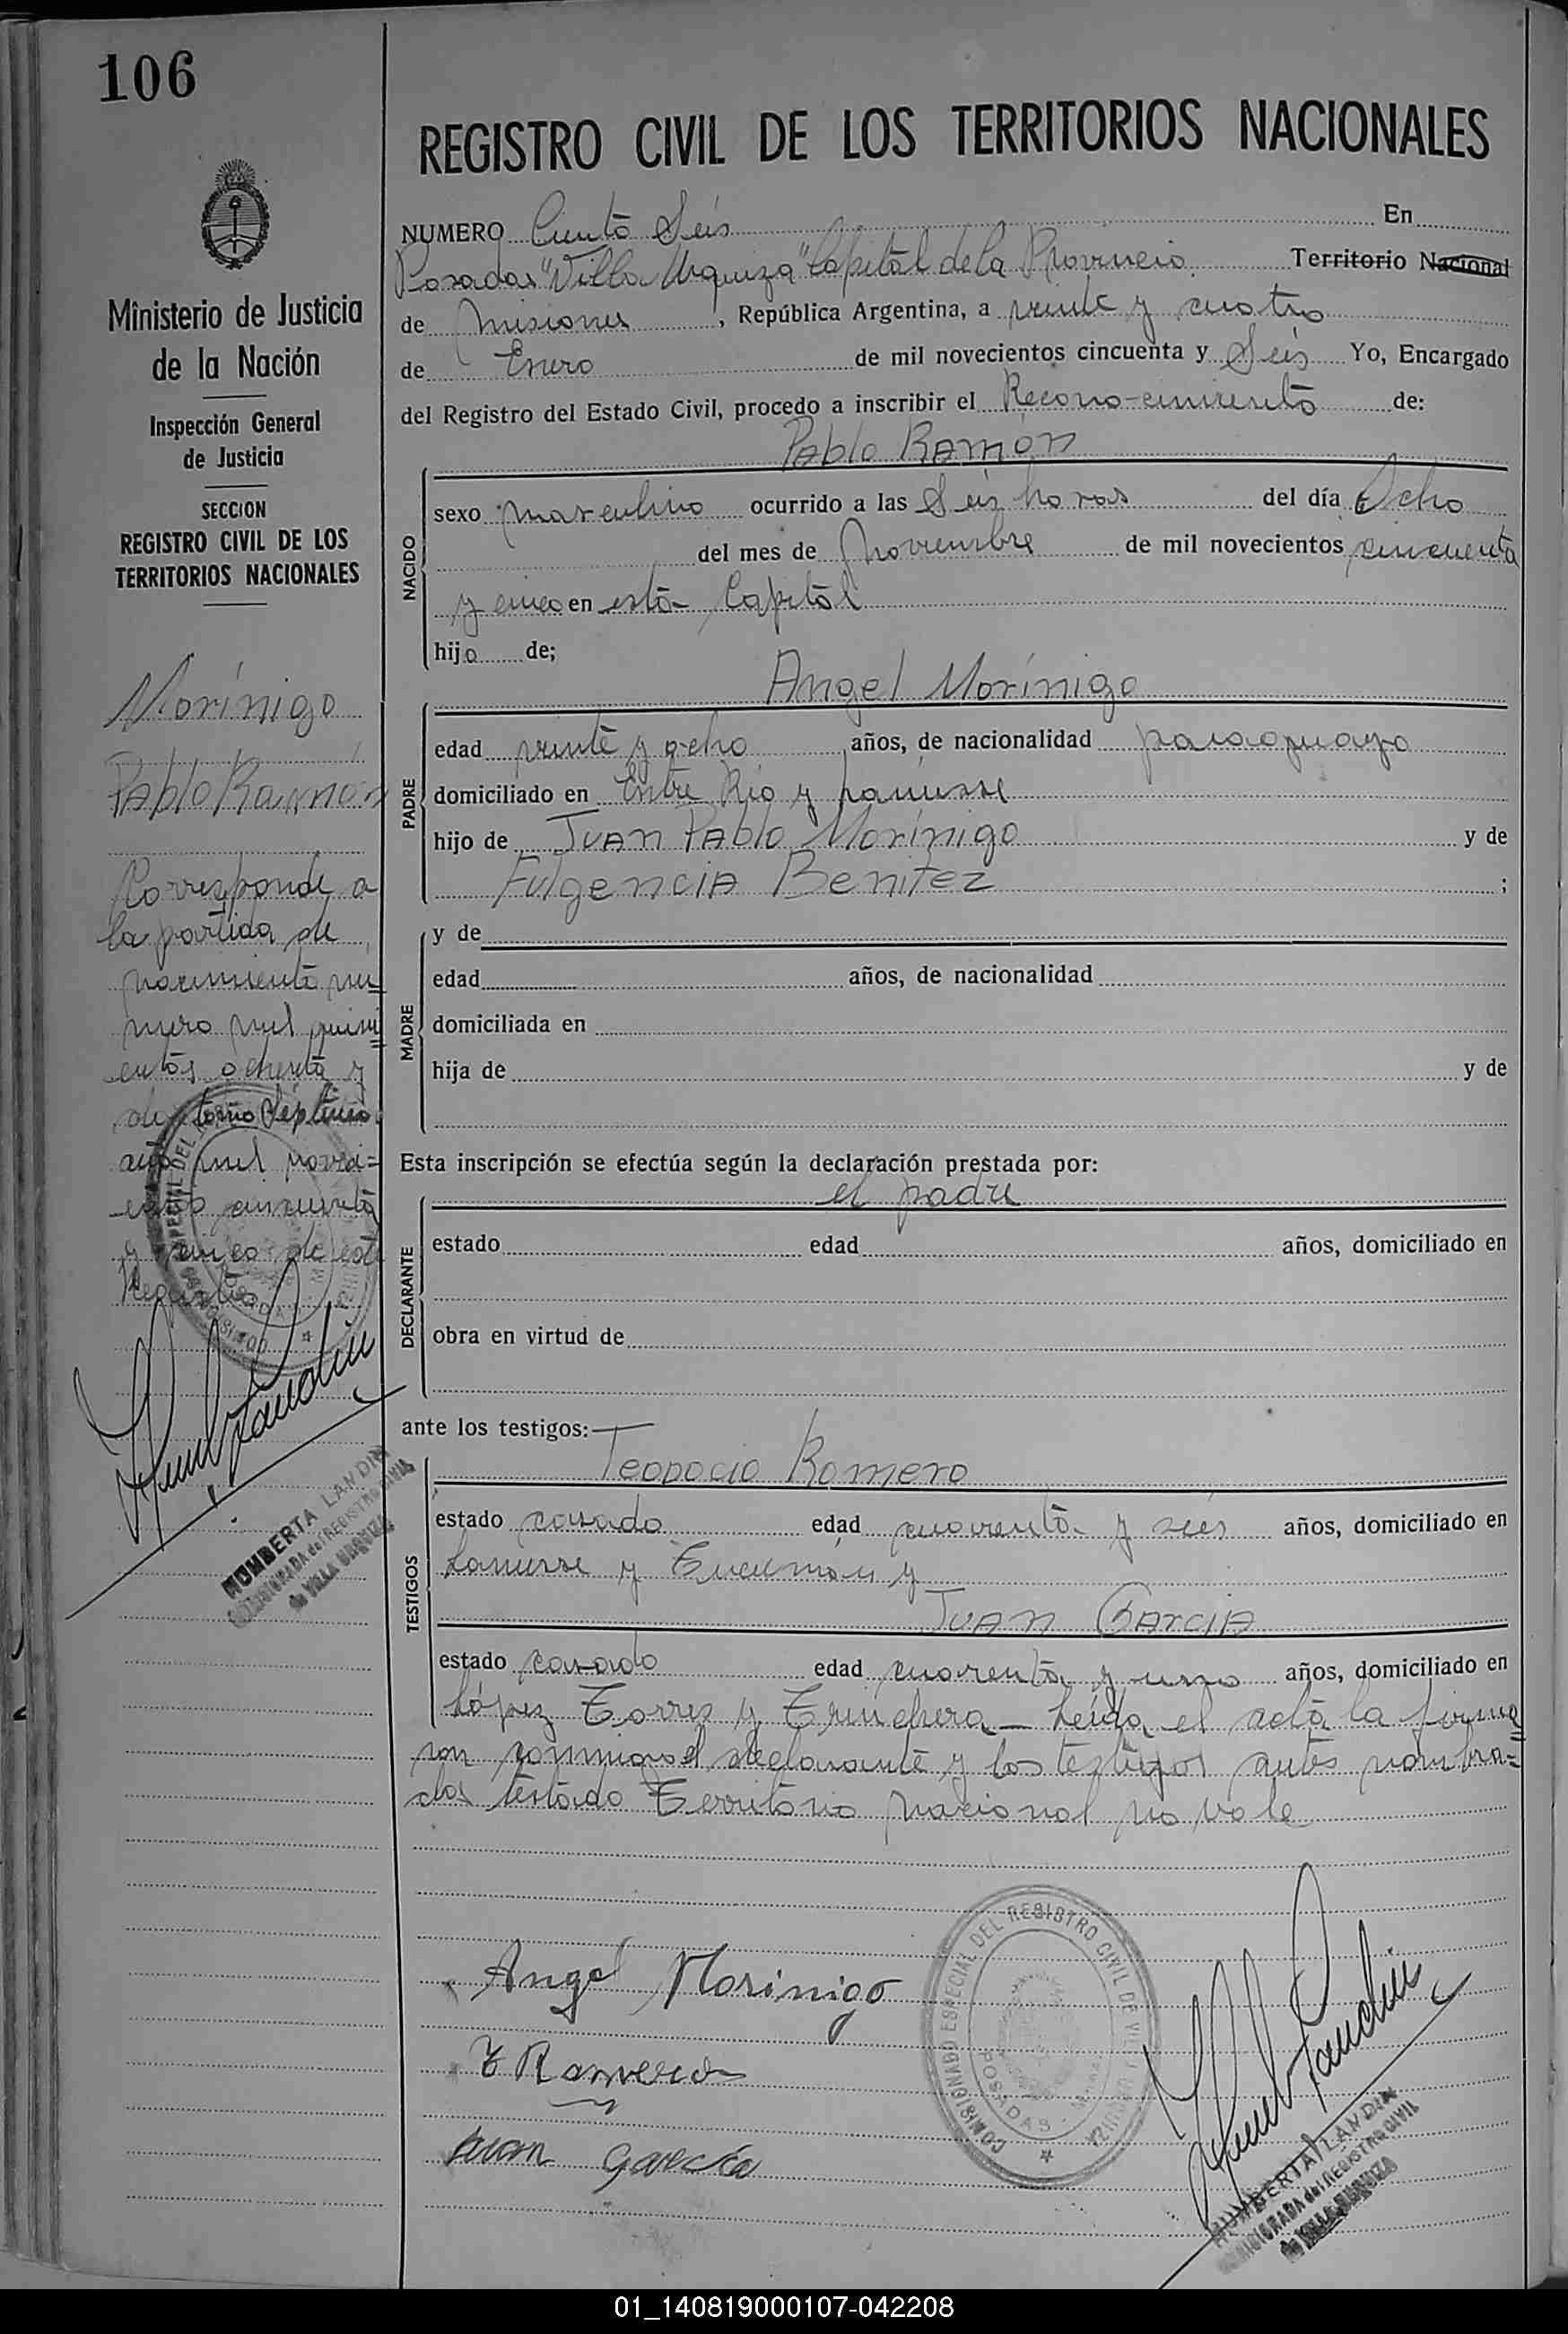 106
REGISTRO CIVIL DE LOS TERRITORIOS NACIONALES
Ministerio de Justicia
de la Nación
Inspección General
de Justicia
SECCION
REGISTRO CIVIL DE LOS
TERRITORIOS NACIONALES
Morínigo
Pablo Ramón
Corresponde a
la partida de
nacimiento nú
mero mil quini
entos ochenta y
tomo Séptimo
año mil novei=
entos cincuenta
y cinco de este
Registro
HUMBERTA LANDIN
COMISIONADA del REGISTRO CIVIL
de VILLA URQUIZA
NUMERO Ciento Seis En
Posadas "Villa Urquiza" Capital de la Provincia Territorio Nacional
de Misiones, República Argentina, a veinte y cuatro
de Enero de mil novecientos cincuenta y Seis Yo, Encargado
del Registro del Estado Civil, procedo a inscribir el Recono-cimiento de:
Pablo Ramón
NACIDO
sexo masculino ocurrido a las Seis horas del día Ocho
del mes de Noviembre de mil novecientos cincuenta
y cinco en esta Capital
hijo de;
Angel Morínigo
PADRE
edad veinte y ocho años, de nacionalidad paraguayo
domiciliado en Entre Río y Lanusse
hijo de Juan Pablo Morínigo y de
Fulgencia Benitez ;
MADRE
y de
edad años, de nacionalidad
domiciliada en
hija de y de
Esta inscripción se efectúa según la declaración prestada por:
el padre
DECLARANTE
estado edad años, domiciliado en
obra en virtud de
ante los testigos:
Teodocio Romero
TESTIGOS
estado casado edad cuarenta y seis años, domiciliado en
Lanusse y Tucumán y
Juan Garcia
estado casado edad cuarenta y uno años, domiciliado en
López Torres y Trinchera - Leída el acta la firma=
ron conmigo el declarante y los testigos antes nombra=
dos testado Territorio Nacional no vale
Angel Morinigo
T Romero
Juan Garcia
COMISIONADO ESPECIAL DEL REGISTRO CIVIL DE VILLA URQUIZA
POSADAS
HUMBERTA LANDIN
COMISIONADA del REGISTRO CIVIL
de VILLA URQUIZA
01_140819000107-042208